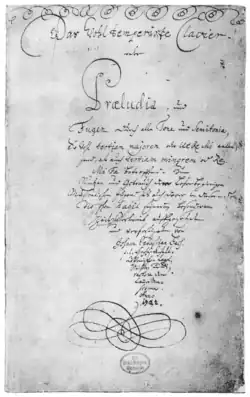 Das Wohltemperirte Clavier
oder
Præludia, und
Fugen durch alle Tone und Semitonia,
So wohl tertiam majorem oder Ut Re Mi anlan-
gend, als auch tertiam minorem oder Re
Mi Fa betreffend. Zum
Nutzen und Gebrauch der Lehrbegierigen
Musicalischen Jugend, als auch derer in diesem stu-
dio schon habil seyenden besonderem
ZeitVertreib auffgesetzet
und verfertiget von
Johann Sebastian Bach.
Anno
1722.